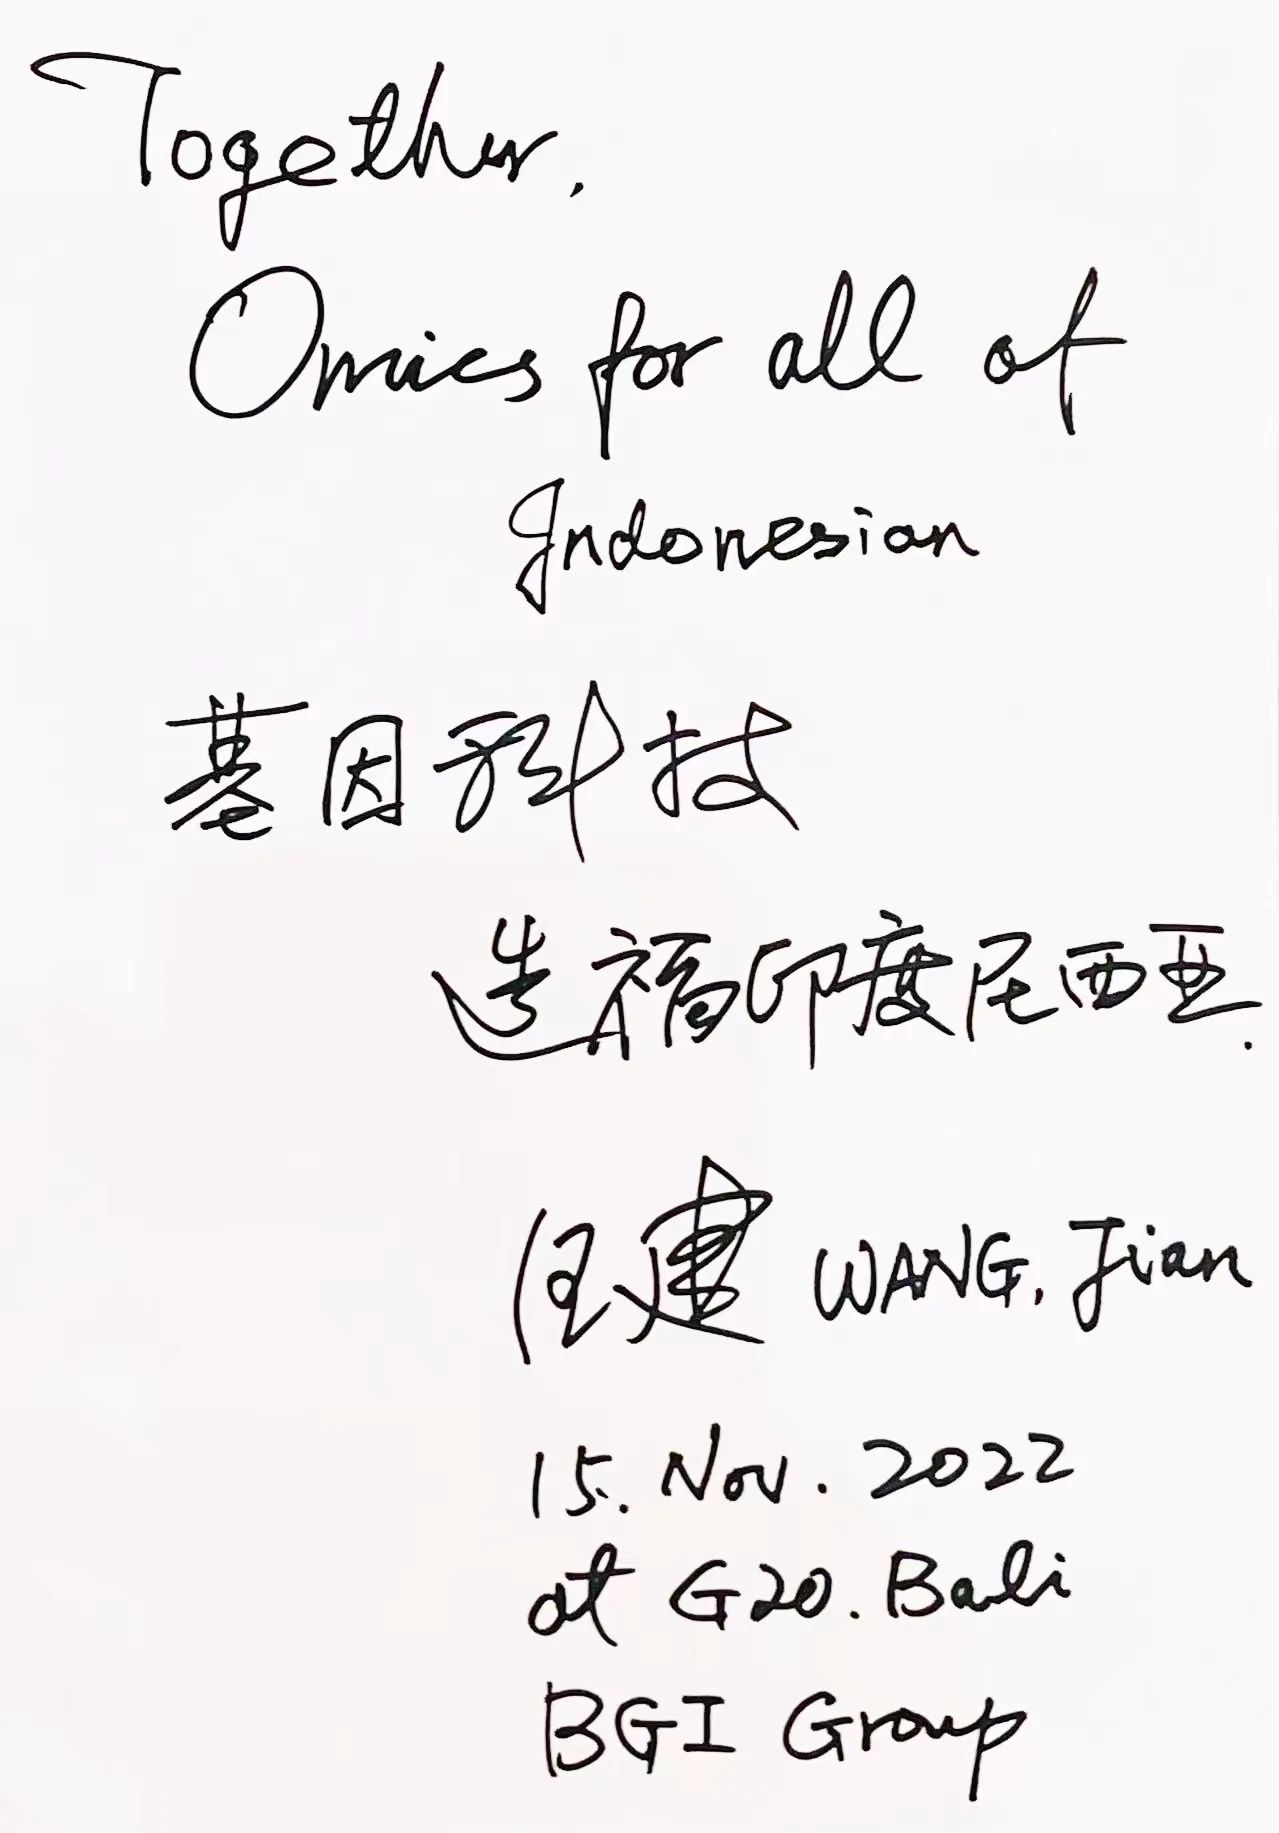 Together,
Omics for all of
Indonesian
基因科技
造福印度尼西亚.
汪建 WANG, Jian
15. Nov. 2022
at G20. Bali
BGI Group